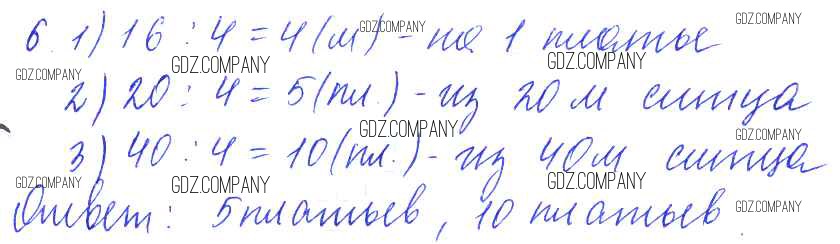 6. 1) 16 : 4 = 4 (м) - на 1 платье
2) 20 : 4 = 5 (пл.) - из 20 м ситца
3) 40 : 4 = 10 (пл.) - из 40 м ситца
Ответ: 5 платьев, 10 платьев
GDZ.COMPANY
GDZ.COMPANY
GDZ.COMPANY
GDZ.COMPANY
GDZ.COMPANY
GDZ.COMPANY
GDZ.COMPANY
GDZ.COMPANY
GDZ.COMPANY
GDZ.COMPANY
GDZ.COMPANY
GDZ.COMPANY